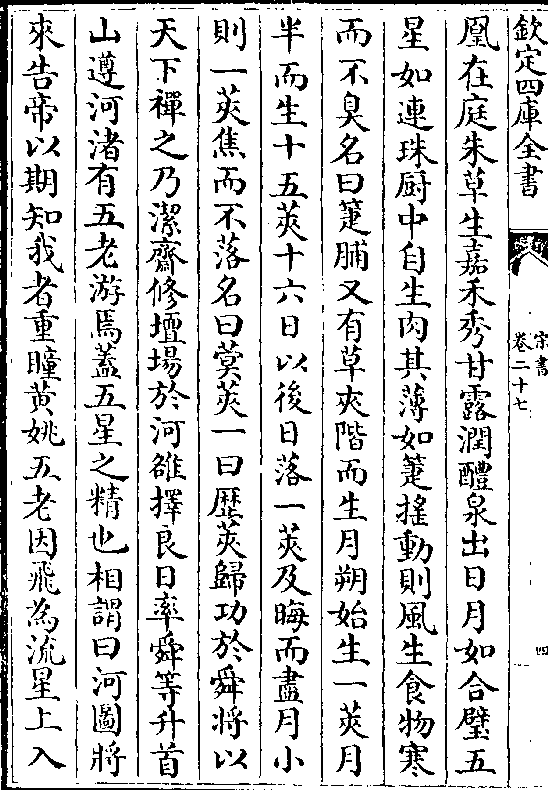 欽定四庫全書
宋書
卷二十七
四
凰在庭朱草生嘉禾秀甘露潤醴泉出日月如合璧五
星如連珠厨中自生肉其薄如箑搖動則風生食物寒
而不臭名曰箑脯又有草夾階而生月朔始生一莢月
半而生十五莢十六日以後日落一莢及晦而盡月小
則一莢焦而不落名曰蓂莢一曰歴莢歸功於舜將以
天下禪之乃潔齋修壇場於河雒擇良日率舜等升首
山遵河渚有五老游焉蓋五星之精也相謂曰河圖將
來告帝以期知我者重瞳黄姚五老因飛為流星上入